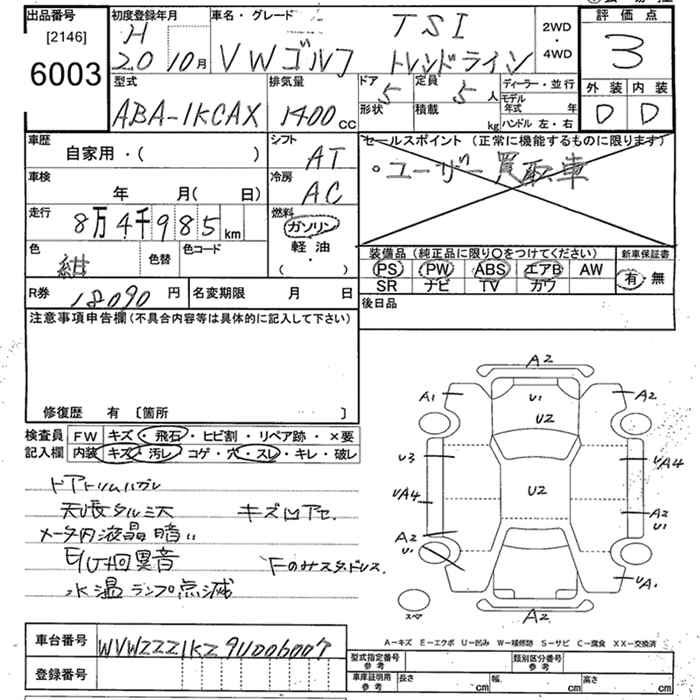 出品番号
[2146]
6003
初度登録年月
H
20 10月
車名・グレード
TSI
VWゴルフ トレンドライン
2WD
・
4WD
評価点
3
外装 内装
D D
型式
ABA-1KCAX
排気量
1400 CC
ドア 5
定員 5 人
形状
積載 kg
ディーラー・並行
モデル年式 年
ハンドル 左・右
車歴
自家用・( )
シフト
AT
セールスポイント (正常に機能するものに限ります)
・ユーザー買取車
車検
年 月( 日)
冷房
AC
走行
8万4千985 km
燃料
ガソリン
軽油
( ・ )
色
紺
色替
色コード
装備品 (純正品に限り〇をつけてください)
PS PW ABS エアB AW
SR ナビ TV カワ
新車保証書
有・無
R券 18090 円
名変期限 月 日
後日品
注意事項申告欄(不具合内容等は具体的に記入して下さい)
修復歴 有 [箇所 ]
検査員
記入欄
FW キズ・飛石・ヒビ割・リペア跡・×要
内装 キズ・汚レ・コゲ・穴・スレ・キレ・破レ
ドアトリムハガレ
天張タルミ大 キズ凹アセ.
メータ内液晶暗い
E/G廻異音
水温ランプ点滅
A2
A1 U1 A2
U2
U3 UA4
UA4 U2
A2 U1
A2
U1
UA1
スペア
A2
A-キズ E-エクボ U-凹み W-補修跡 S-サビ C-腐食 XX-交換済
車台番号
WVWZZZ1KZ9U006007
登録番号
型式指定番号
参考
類別区分番号
参考
車庫証明用
参考
長さ cm
幅 cm
高さ cm